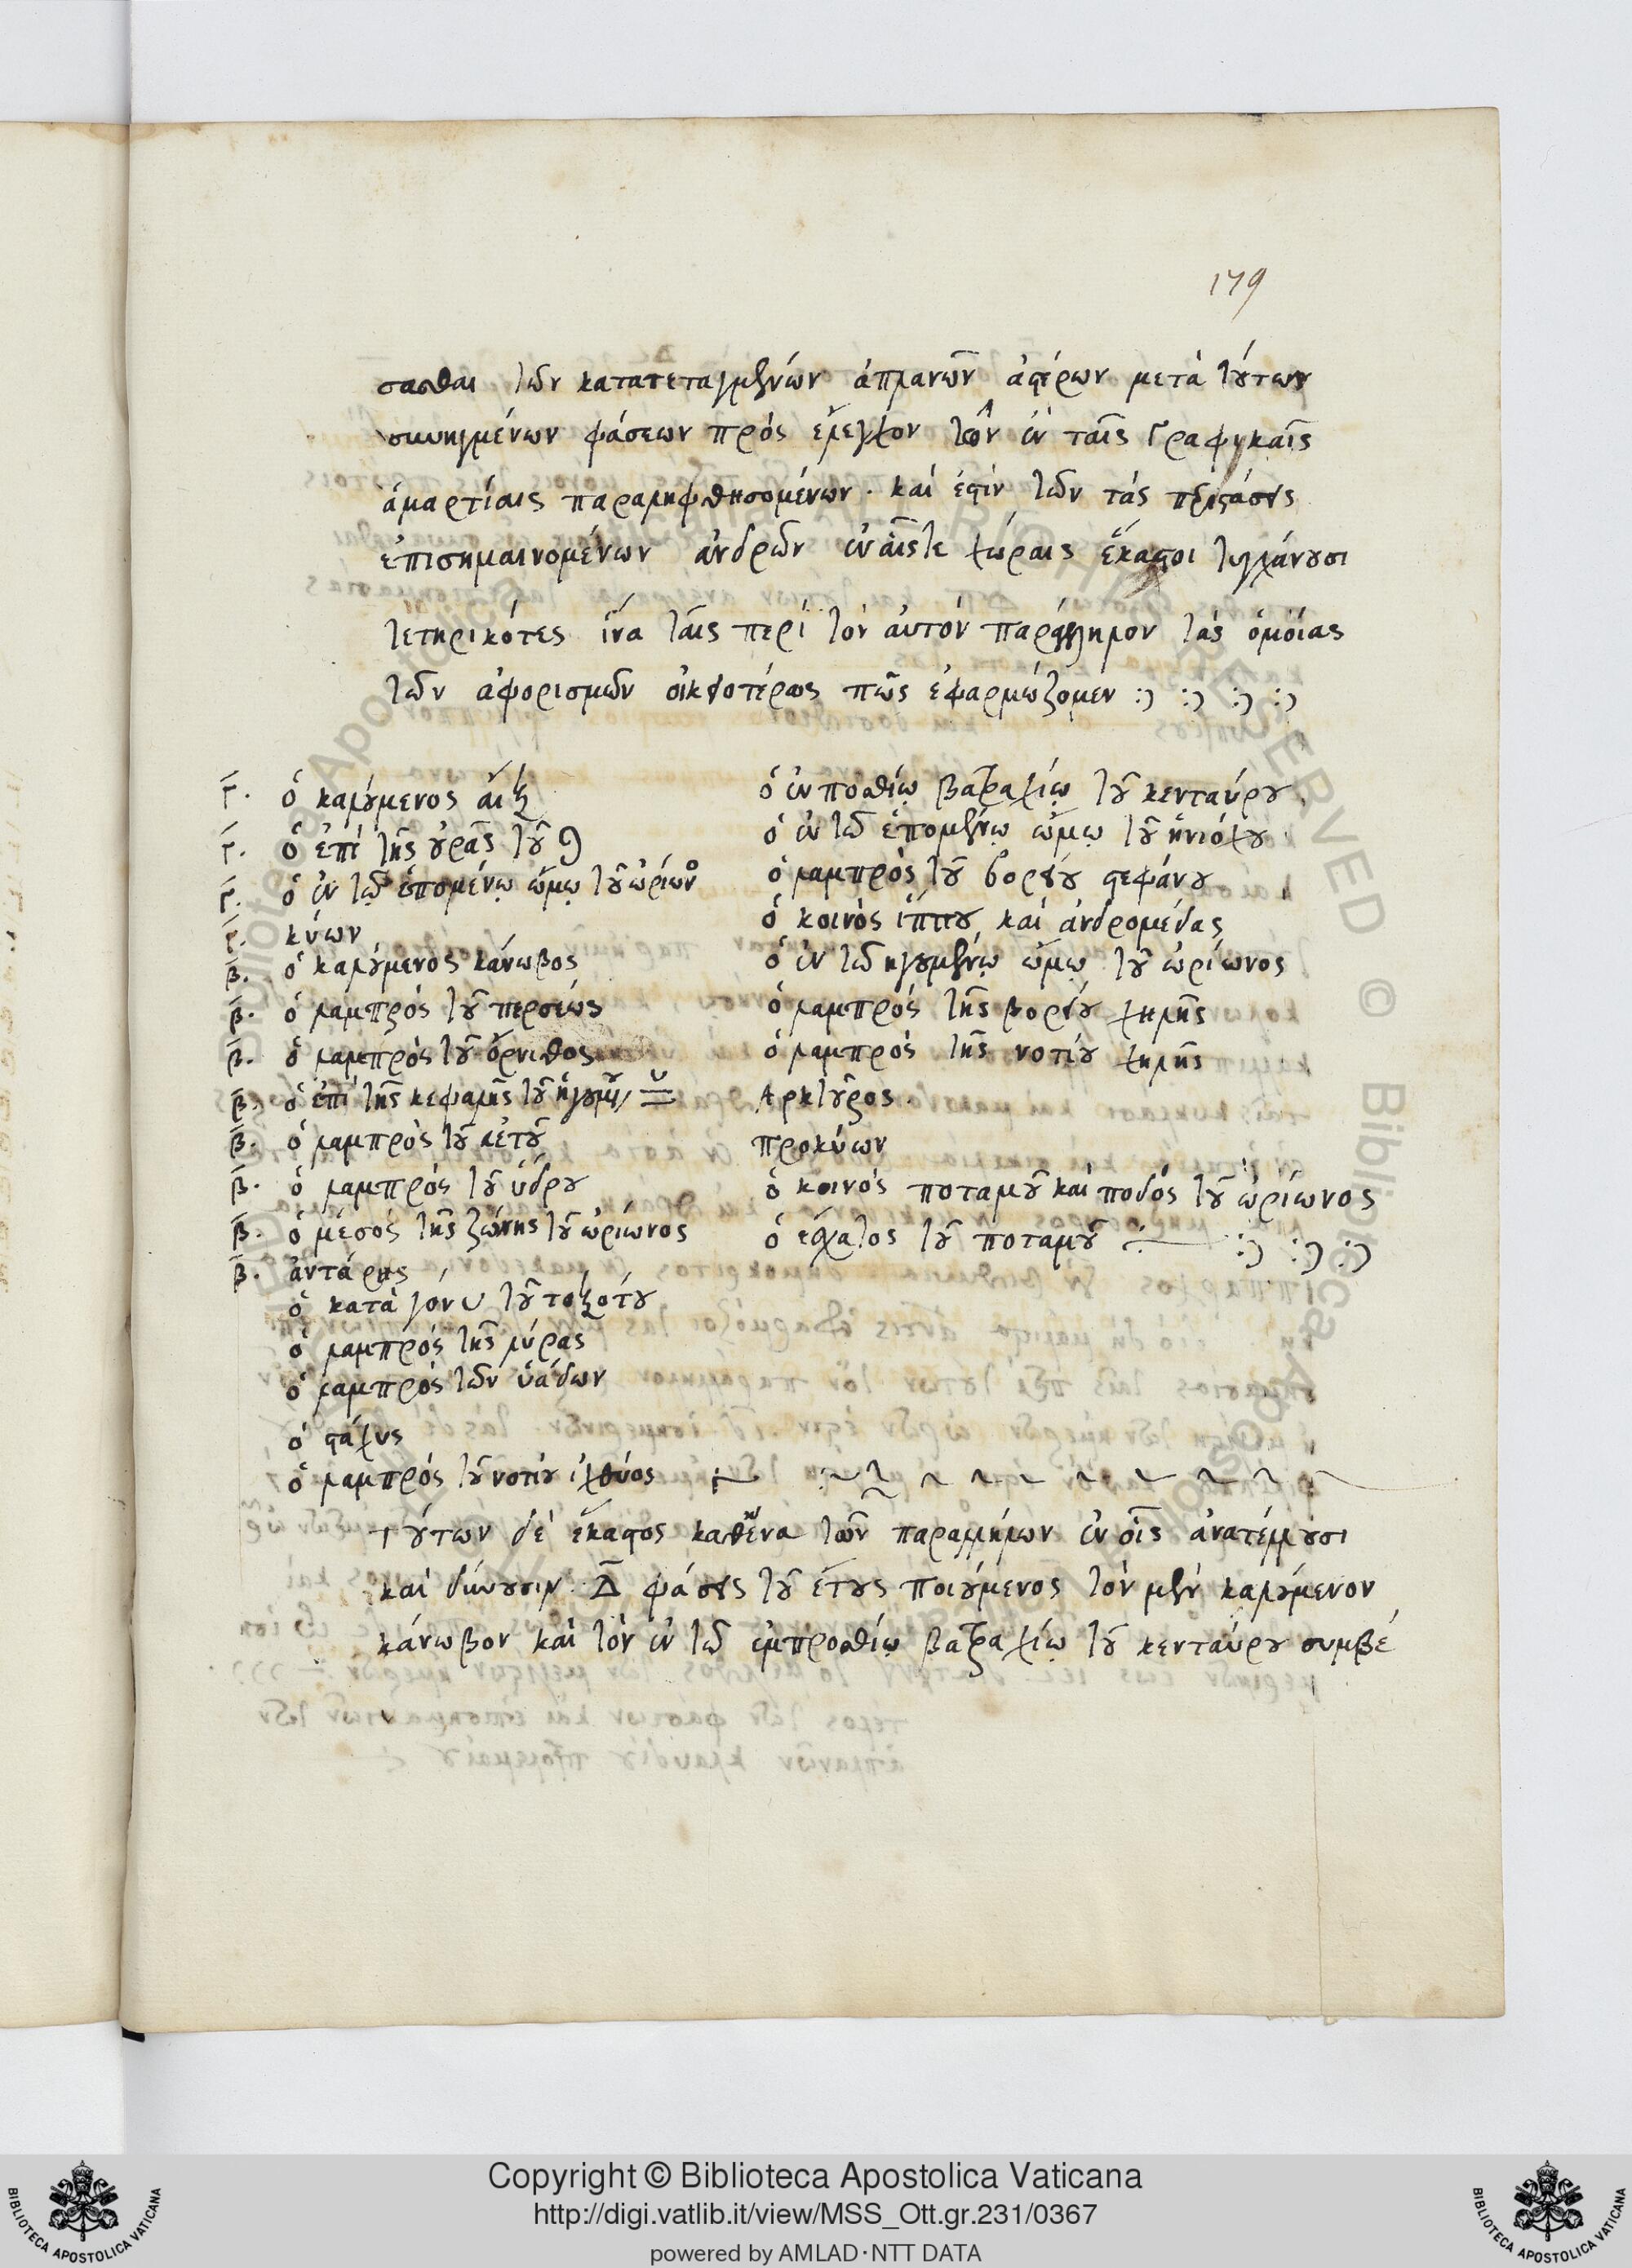 179
σασθαι τῶν κατατεταγμένων ἀπλανῶν ἀστέρων μετὰ τούτων
συνημμένων φάσεων πρὸς ἔλεγχον τῶν ἐν ταῖς Γραφικαῖς
ἁμαρτίαις παραληφθησομένων. καὶ ἔστιν τῶν τὰς περιστάσεις
ἐπισημαινομένων ἀνδρῶν ἐν αἷς τε χώραις ἕκαστοι τυγχάνουσι
τετηρικότες ἵνα ταῖς περὶ τὸν αὐτὸν παράλληλον τὰς ὁμοίας
τῶν ἀφορισμῶν οἰκειοτέρως πῶς ἐφαρμώζομεν :) :) :) :)
Γ. ὁ καλούμενος αἴξ
Γ. ὁ ἐπὶ τῆς οὐρᾶς τοῦ
Γ. ὁ ἐν τῷ ἑπομένῳ ὤμῳ τοῦ ὠρίωνος
Γ. κύων
β. ὁ καλούμενος κάνωβος
β. ὁ λαμπρὸς τοῦ περσέως
β. ὁ λαμπρὸς τοῦ ὄρνιθος
β. ὁ ἐπὶ τῆς κεφαλῆς τοῦ ἡγουμένου
β. ὁ λαμπρὸς τοῦ ἀετοῦ
β. ὁ λαμπρὸς τοῦ ὕδρου
β. ὁ μέσος τῆς ζώνης τοῦ ὠρίωνος
β. ἀντάρης
ὁ κατὰ γόνυ τοῦ τοξότου
ὁ λαμπρὸς τῆς λύρας
ὁ λαμπρὸς τῶν ὑάδων
ὁ στάχυς
ὁ λαμπρὸς τοῦ νοτίου ἰχθύος
ὁ ἐν ποσθίῳ βατραχίῳ τοῦ κενταύρου
ὁ ἐν τῷ ἑπομένῳ ὤμῳ τοῦ ἡνιόχου
ὁ λαμπρὸς τοῦ βορείου στεφάνου
ὁ κοινὸς ἵππου καὶ ἀνδρομέδας
ὁ ἐν τῷ ἡγουμένῳ ὤμῳ τοῦ ὠρίωνος
ὁ λαμπρὸς τῆς βορείου χηλῆς
ὁ λαμπρὸς τῆς νοτίου χηλῆς
Ἀρκτοῦρος.
προκύων
ὁ κοινὸς ποταμοῦ καὶ ποδὸς τοῦ ὠρίωνος
ὁ ἔσχατος τοῦ ποταμοῦ :) :) :)
τούτων δὲ ἕκαστος καθἕνα τῶν παραλλήλων ἐν οἷς ἀνατέλλουσι
καὶ δύνουσιν. Δ φάσεις τοῦ ἔτους ποιούμενος τὸν μὲν καλούμενον
κάνωβον καὶ τὸν ἐν τῷ ἐμπροσθίῳ βατραχίῳ τοῦ κενταύρου συμβέ
Copyright © Biblioteca Apostolica Vaticana
http://digi.vatlib.it/view/MSS_Ott.gr.231/0367
powered by AMLAD·NTT DATA